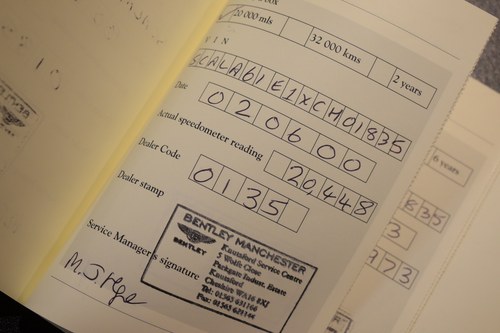 20 000 mls
32 000 kms
2 years
V I N
SCALA61E1XCH01835
Date
020600
Actual speedometer reading
20,448
Dealer Code
0135
Dealer stamp
BENTLEY MANCHESTER
BENTLEY
Knutsford Service Centre
5 Wolfe Close
Parkgate Indust. Estate
Knutsford
Cheshire WA16 8XJ
Tel: 01565 631166
Fax: 01565 631144
Service Manager's signature
6 years
835
3
923